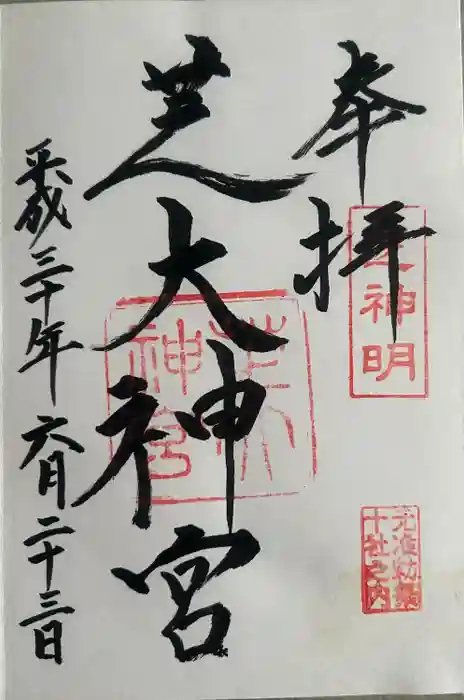 奉拝
芝大神宮
平成三十年六月二十三日
芝神明
元准勅祭
十社之内